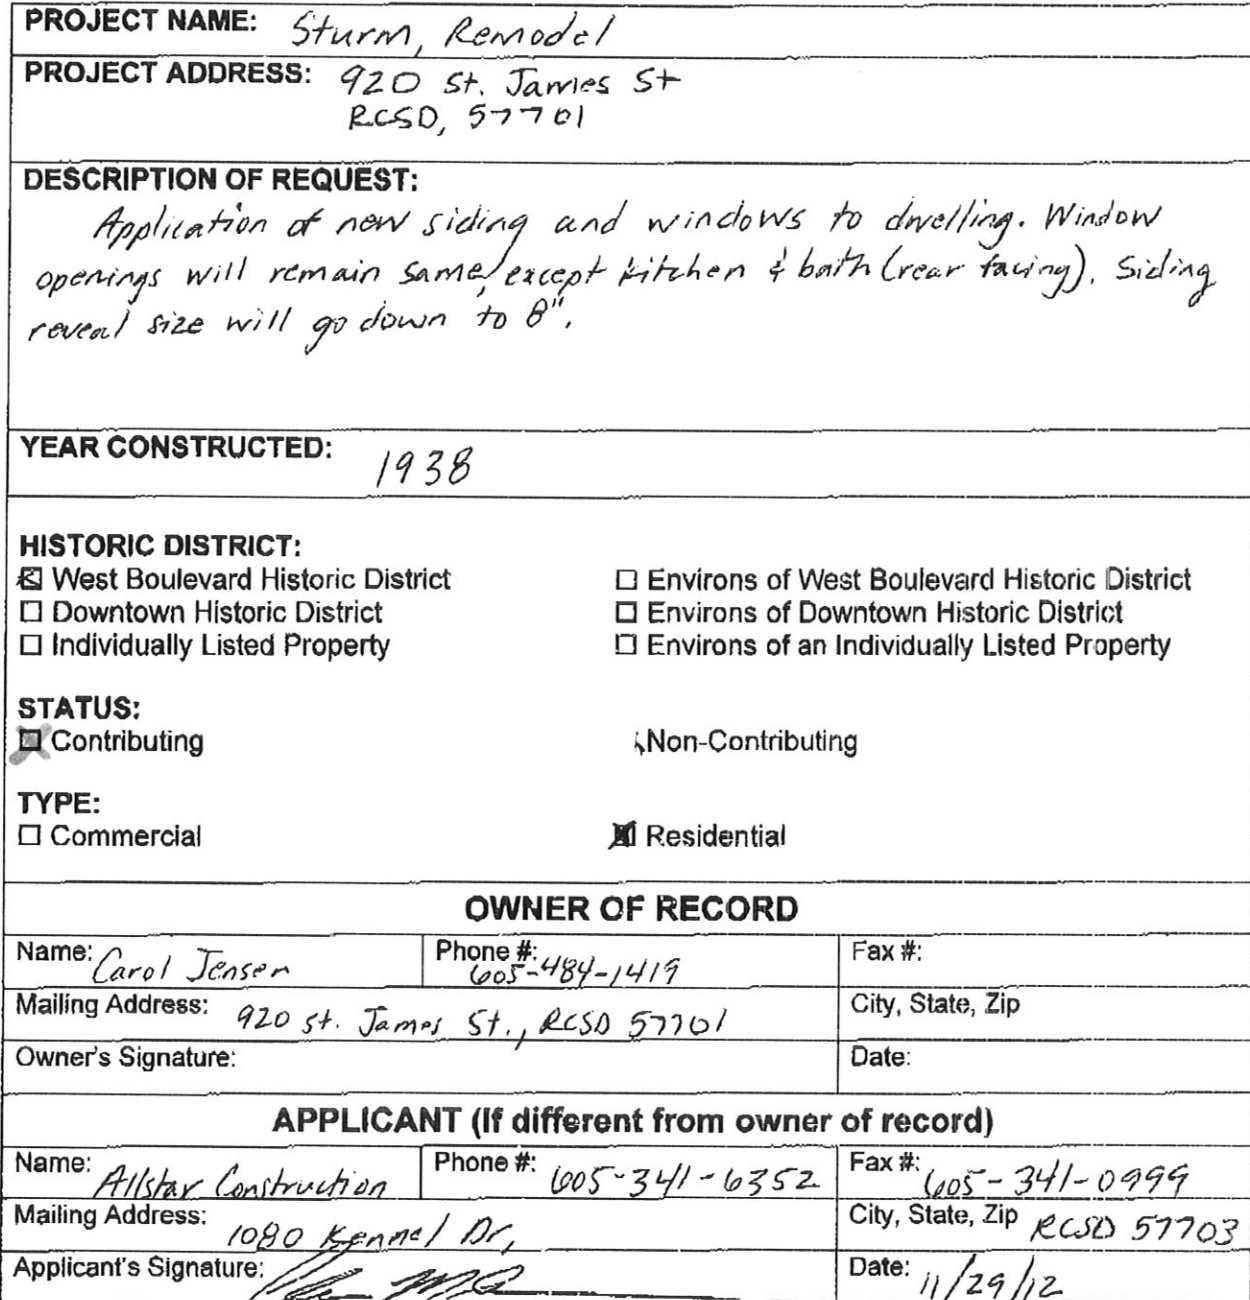 PROJECT NAME: Sturm, Remodel
PROJECT ADDRESS: 920 St. James St
RCSD, 57701
DESCRIPTION OF REQUEST:
Application of new siding and windows to dwelling. Window
openings will remain same, except kitchen & bath (rear facing). Siding
reveal size will go down to 8".
YEAR CONSTRUCTED: 1938
HISTORIC DISTRICT:
West Boulevard Historic District Environs of West Boulevard Historic District
Downtown Historic District Environs of Downtown Historic District
Individually Listed Property Environs of an Individually Listed Property
STATUS:
Contributing Non-Contributing
TYPE:
Commercial Residential
OWNER OF RECORD
Name: Carol Jensen Phone #: 605-484-1419 Fax #:
Mailing Address: 920 St. James St., RCSD 57701 City, State, Zip
Owner's Signature: Date:
APPLICANT (If different from owner of record)
Name: Allstar Construction Phone #: 605-341-6352 Fax #: 605-341-0999
Mailing Address: 1080 Kennel Dr, City, State, Zip RCSD 57703
Applicant's Signature: Date: 11/29/12